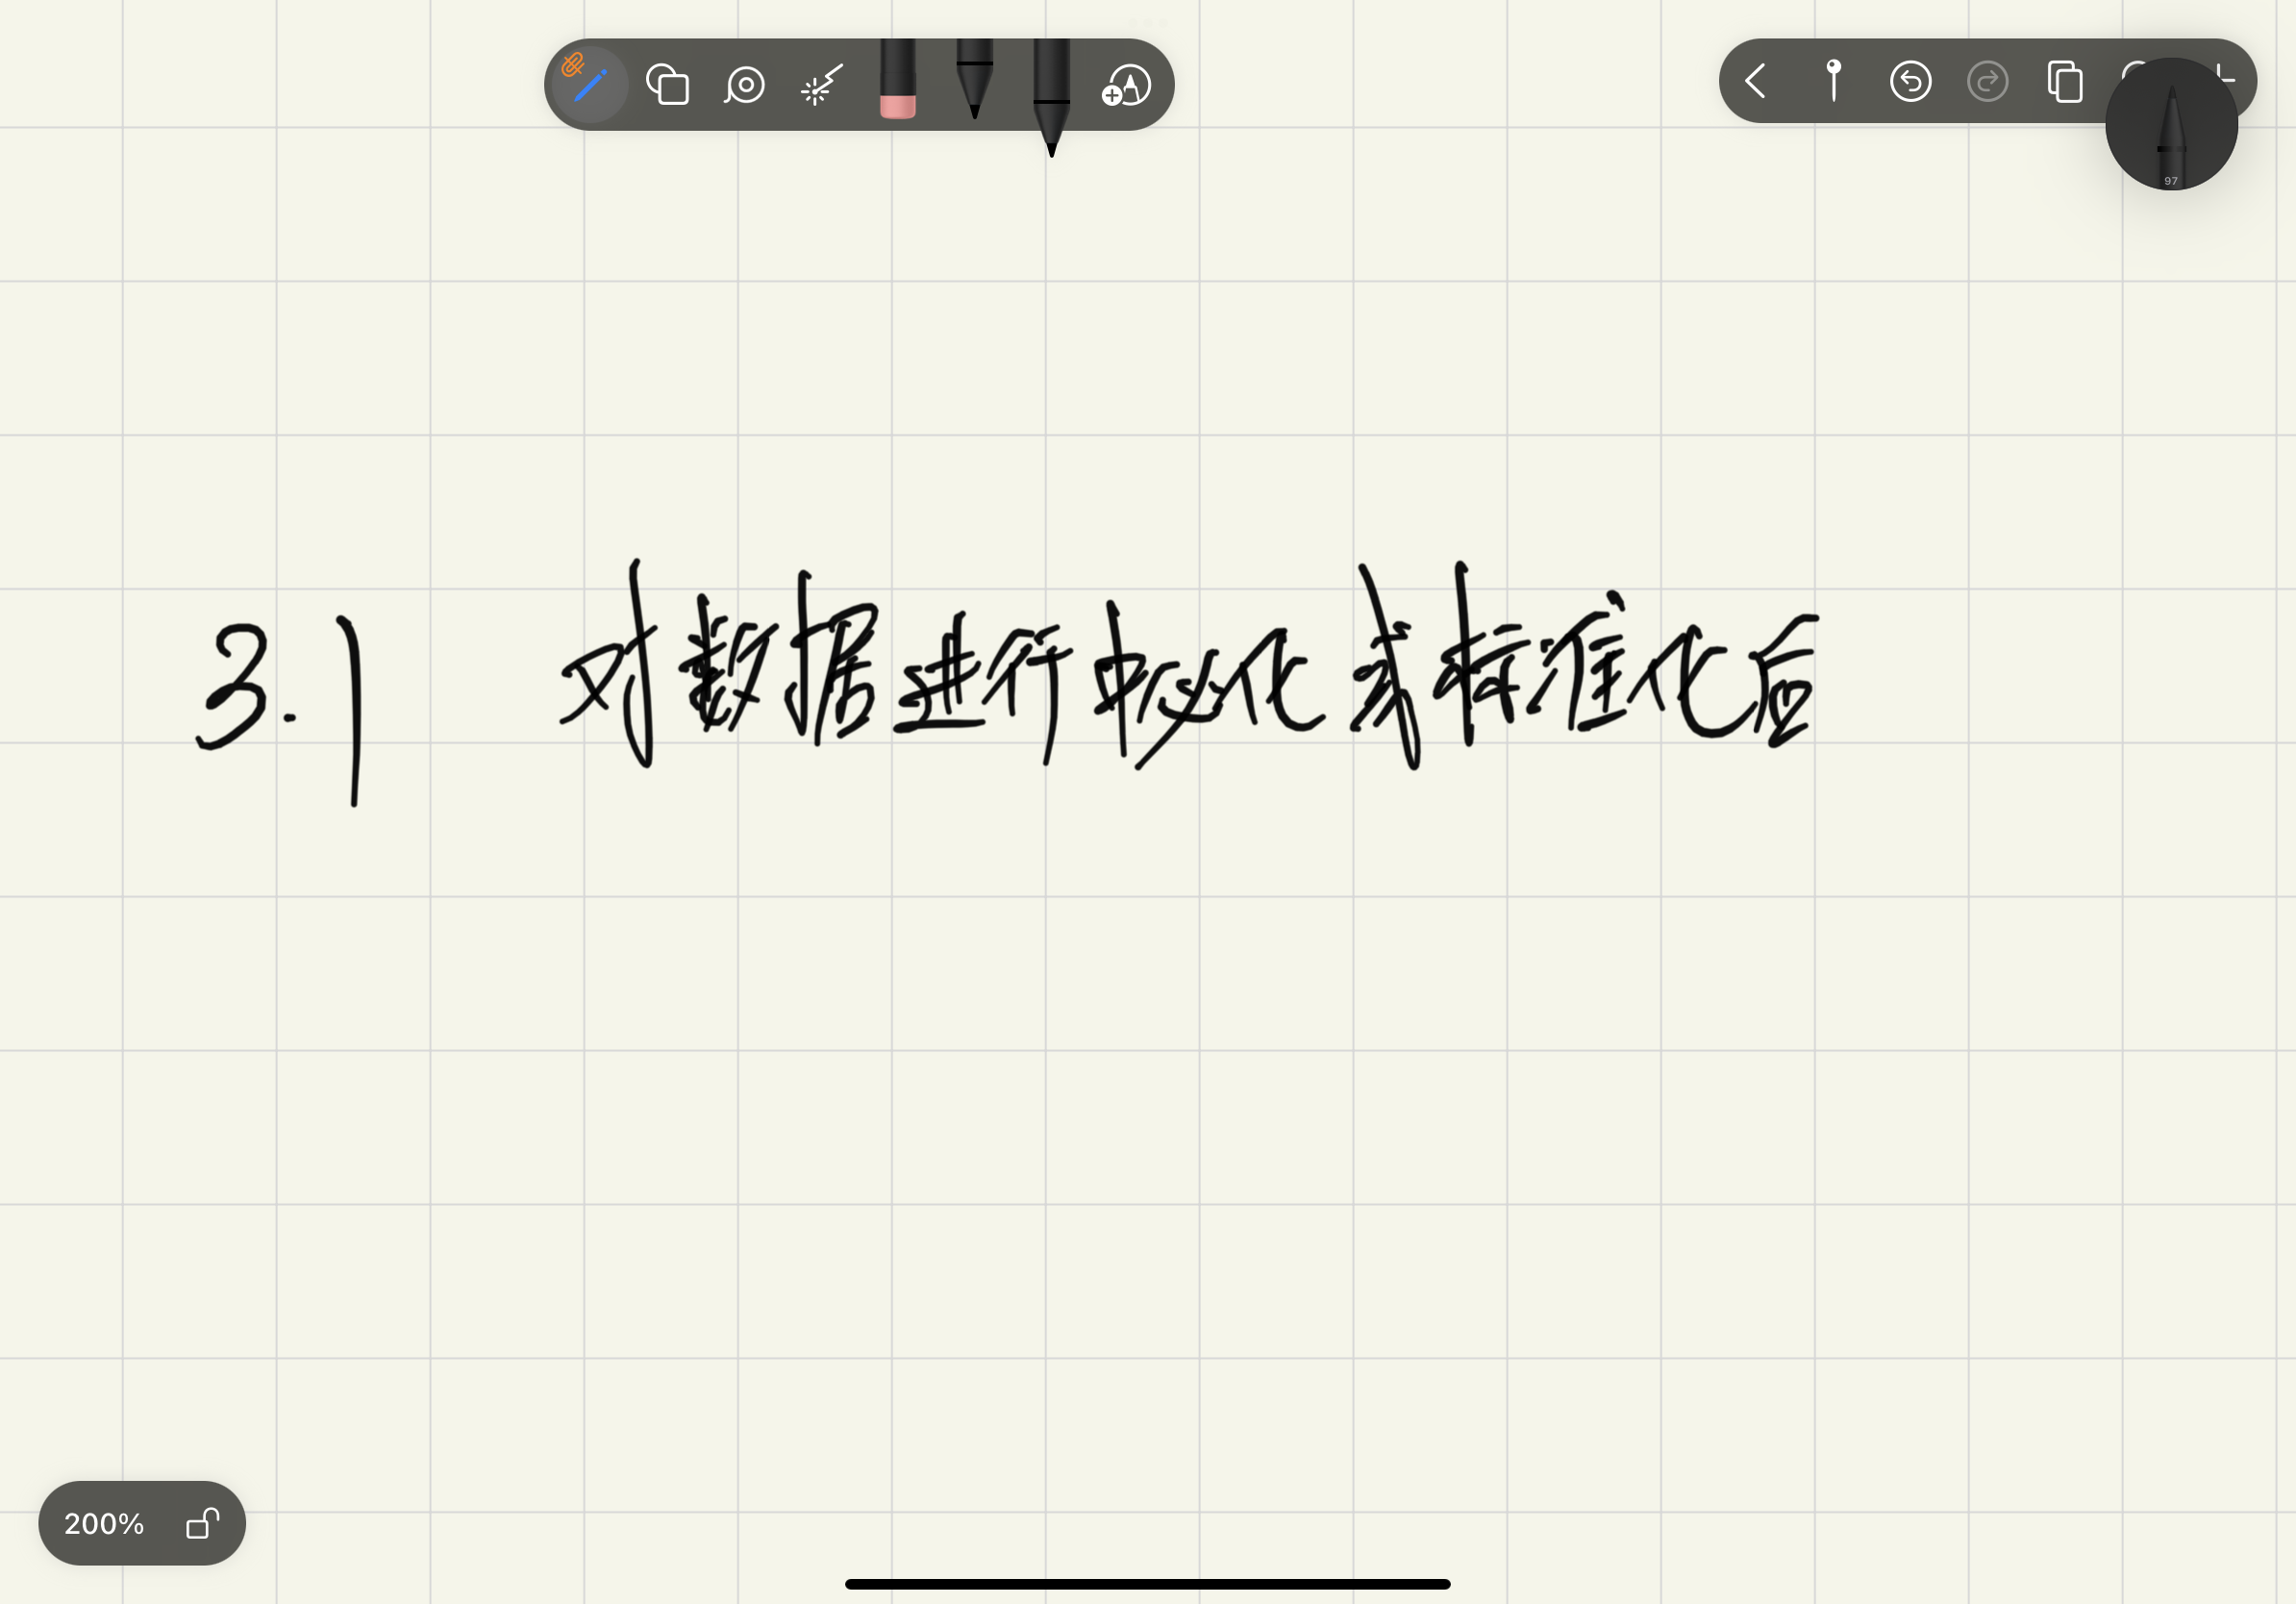 97
3.1 对数据进行中心化或标准化后
200%